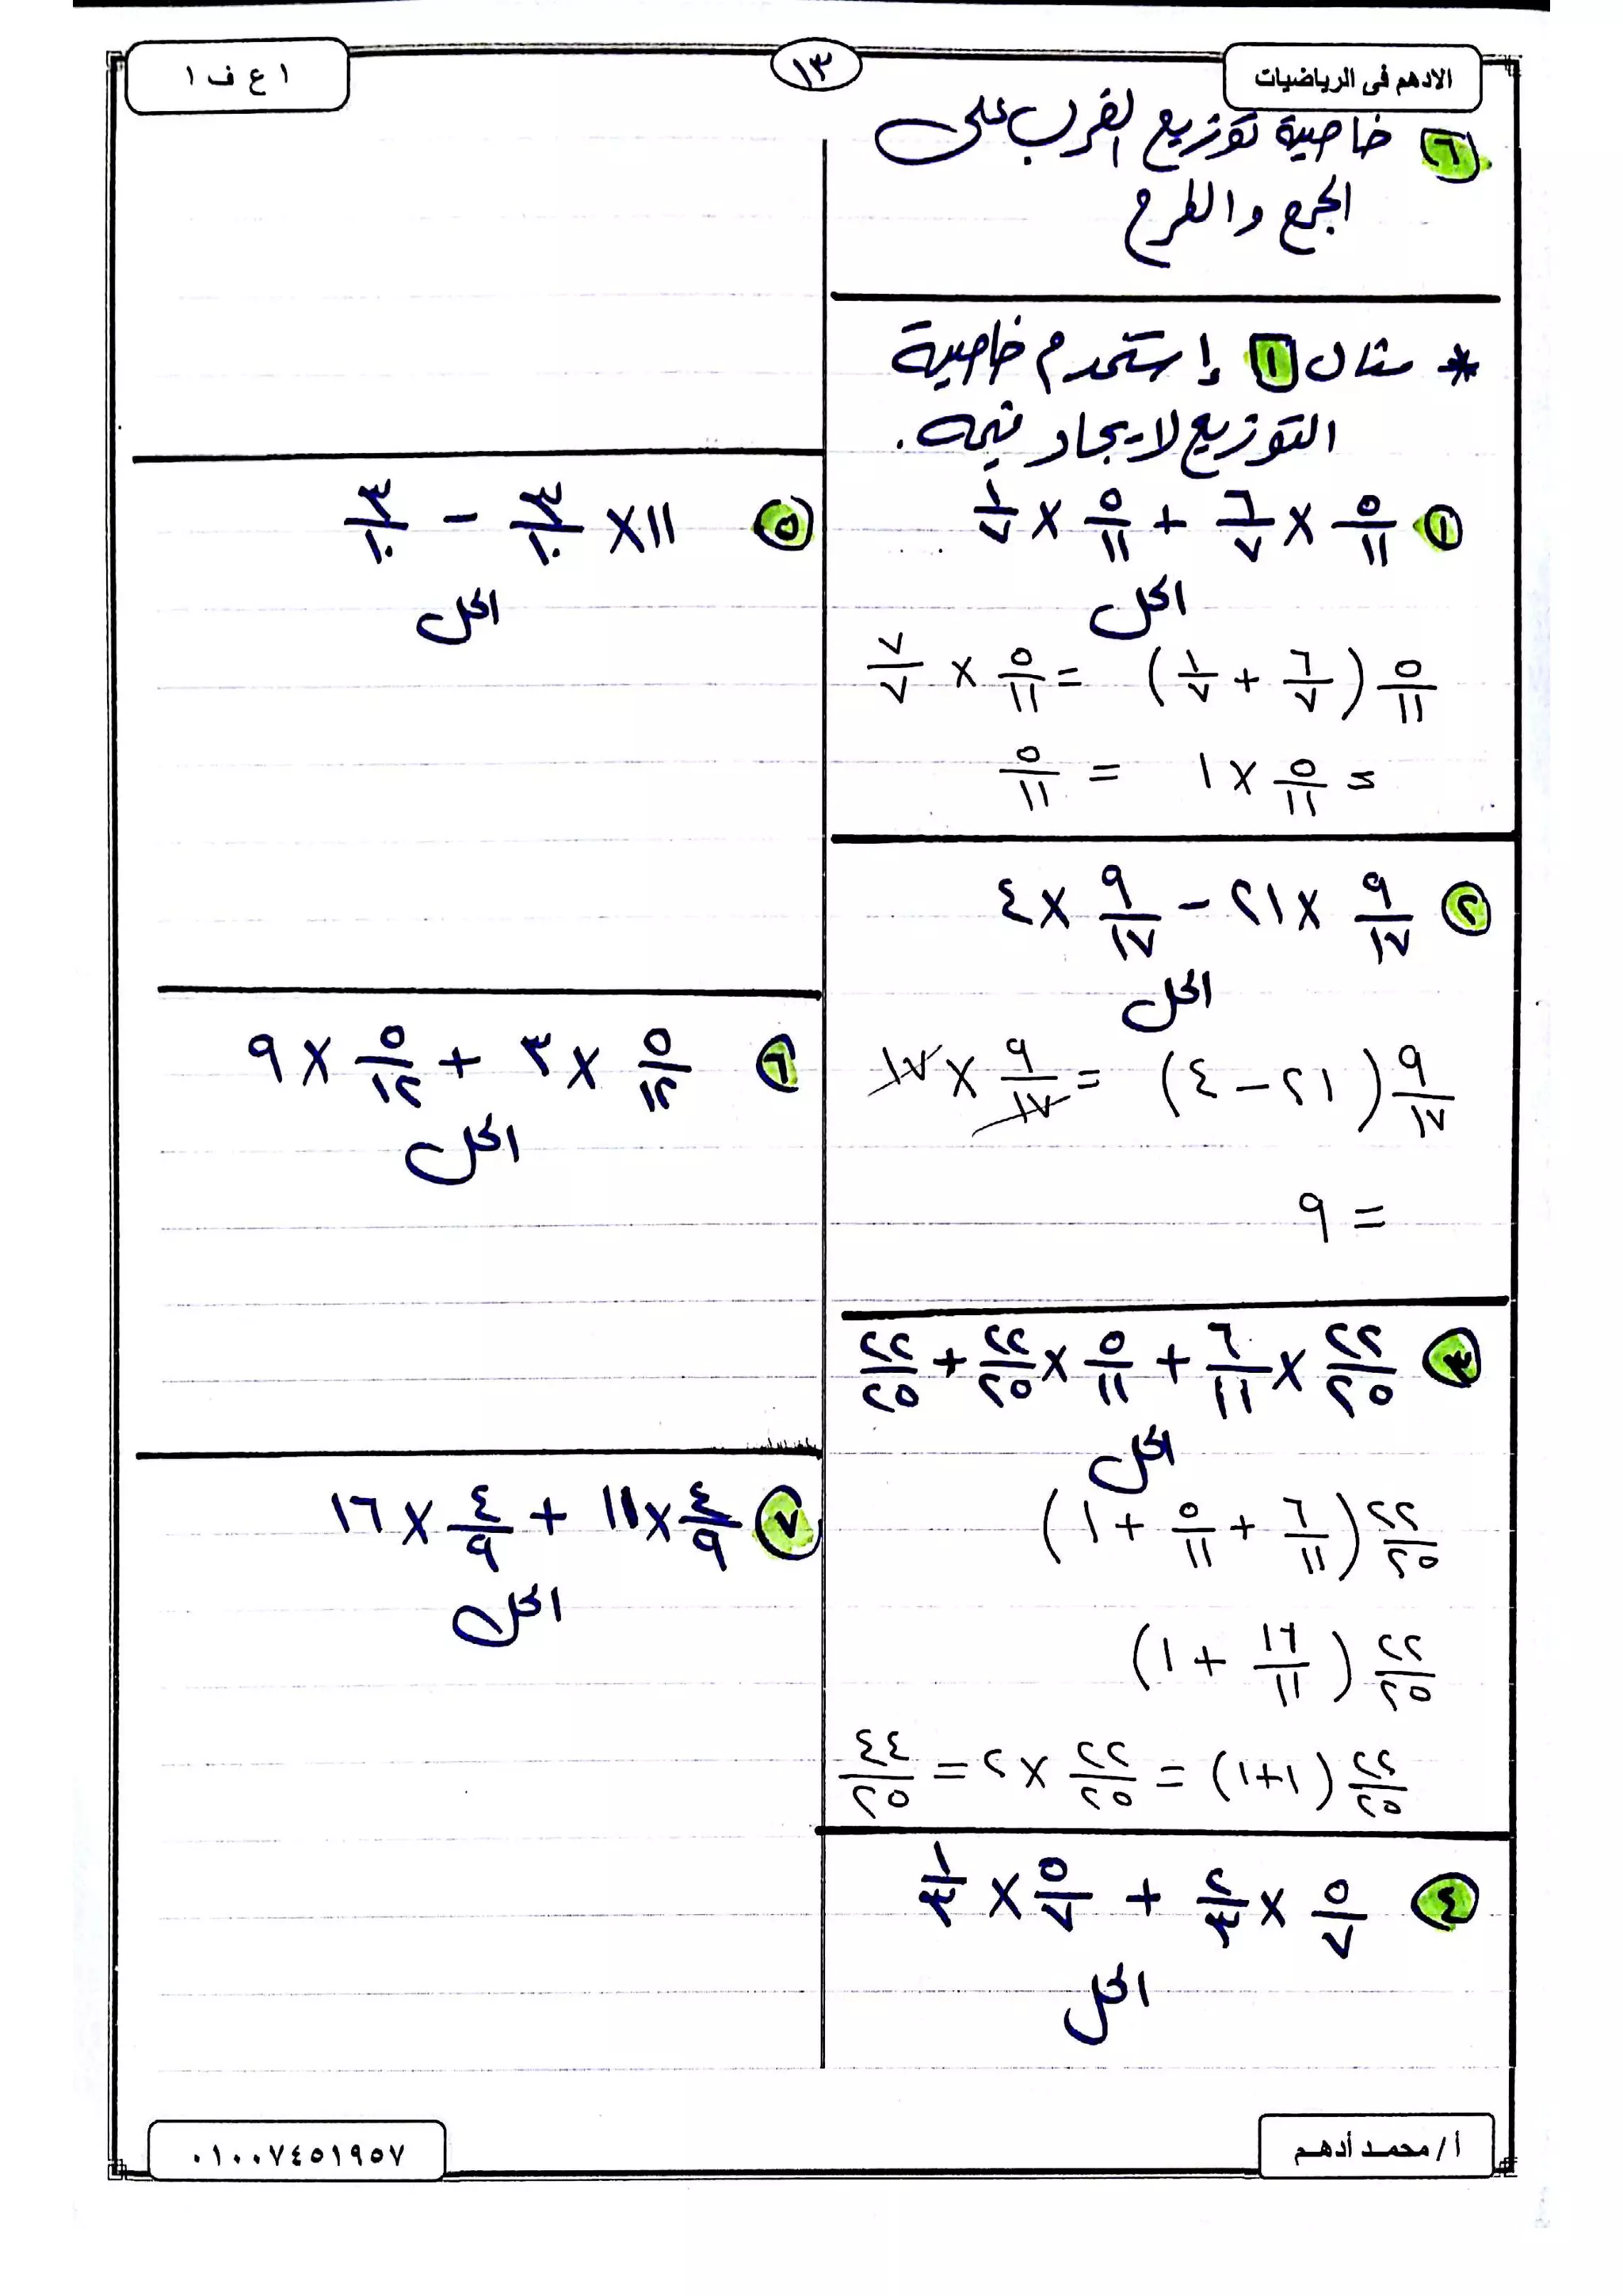 الادهم فى الرياضيات
١٣
١ ع ف ١
٦ خاصية توزيع الضرب على
الجمع والطرح
* مثال ١ إستخدم خاصية
التوزيع لايجاد قيمة.
١ ٥/١١ × ٦/٧ + ٥/١١ × ١/٧
الحل
٥/١١ (٦/٧ + ١/٧) = ٥/١١ × ٧/٧
= ٥/١١ × ١ = ٥/١١
٢ ٩/١٧ × ٢١ - ٩/١٧ × ٤
الحل
٩/١٧ (٢١ - ٤) = ٩/١٧ × ١٧
= ٩
٣ ٢٢/٢٥ × ٦/١١ + ٥/١١ × ٢٢/٢٥ + ٢٢/٢٥
الحل
٢٢/٢٥ (٦/١١ + ٥/١١ + ١)
٢٢/٢٥ (١٦/١١ + ١)
٢٢/٢٥ (١+١) = ٢٢/٢٥ × ٢ = ٤٤/٢٥
٤ ٥/٧ × ٢/٣ + ٥/٧ × ١/٣
الحل
٥ ١١ × ٣/١٠ - ٣/١٠
الحل
٦ ٥/١٢ × ٣ + ٥/١٢ × ٩
الحل
٧ ٤/٩ × ١١ + ٤/٩ × ١٦
الحل
أ/ محمد أدهم
٠١٠٠٧٤٥١٩٥٧